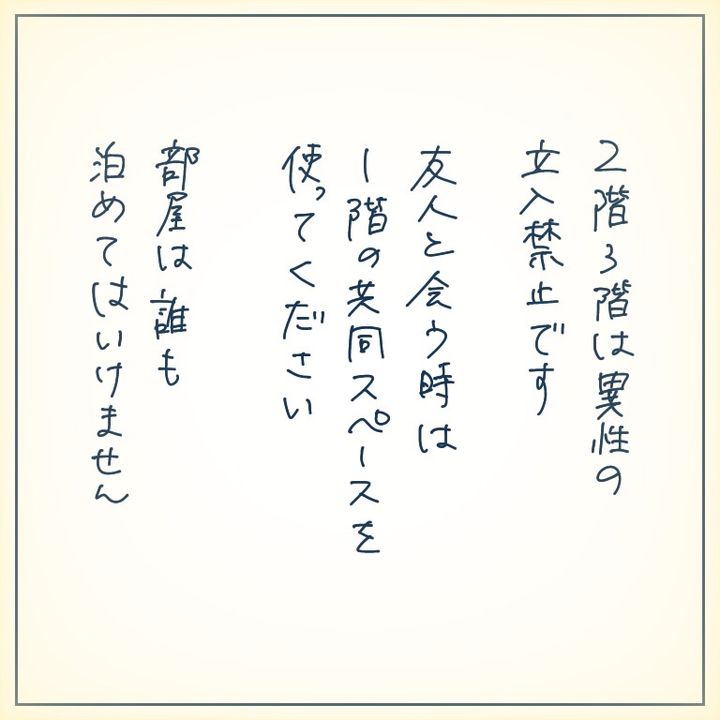 2階3階は異性の
立入禁止です
友人と会う時は
1階の共同スペースを
使ってください
部屋は誰も
泊めてはいけません